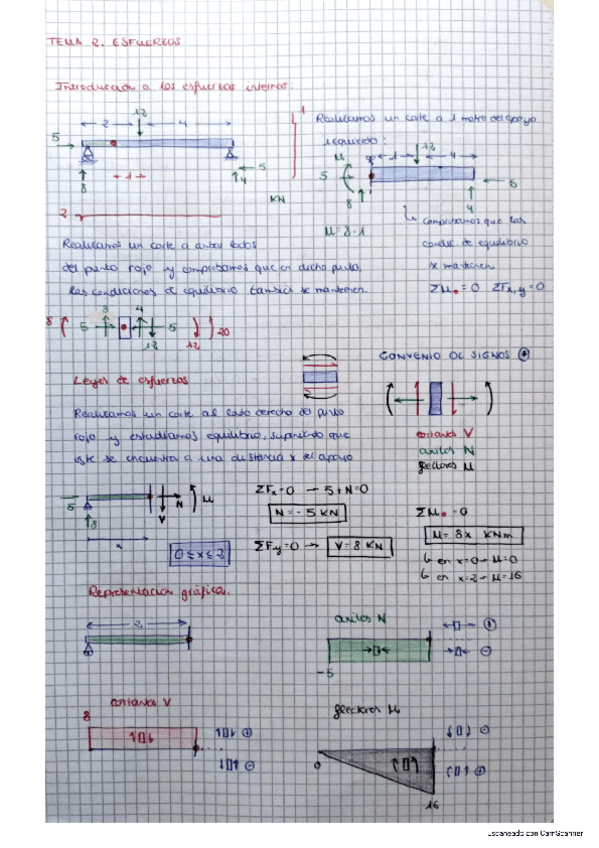 TEMA 2. ESFUERZOS
Introducción a los esfuerzos internos.
12
2
4
5
5
8
4
1
KN
1
Realizamos un corte a 1 metro del apoyo
izquierdo:
M
12
1
4
5
5
8
4
M = 8·1
Comprobamos que las
condic. de equilibrio
se mantienen
ΣM = 0 ΣFx,y = 0
2
Realizamos un corte a ambos lados
del punto rojo y comprobamos que en dicho punto,
las condiciones de equilibrio también se mantienen.
8
5
4
5
12
12
20
Leyes de esfuerzos
CONVENIO DE SIGNOS +
cortantes V
axiles N
flectores M
Realizamos un corte al lado derecho del punto
rojo y estudiamos equilibrio, suponiendo que
este se encuentra a una distancia x del apoyo
5
8
N
V
M
x
0 ≤ x ≤ 2
ΣFx = 0 → 5+N=0
N = -5 KN
ΣFy = 0 → V = 8 KN
ΣM = 0
M = 8x KNm
en x=0 → M=0
en x=2 → M=16
Representación gráfica.
2
axiles N
-5
+
-
cortantes V
8
+
-
flectores M
0
16
-
+
Escaneado con CamScanner